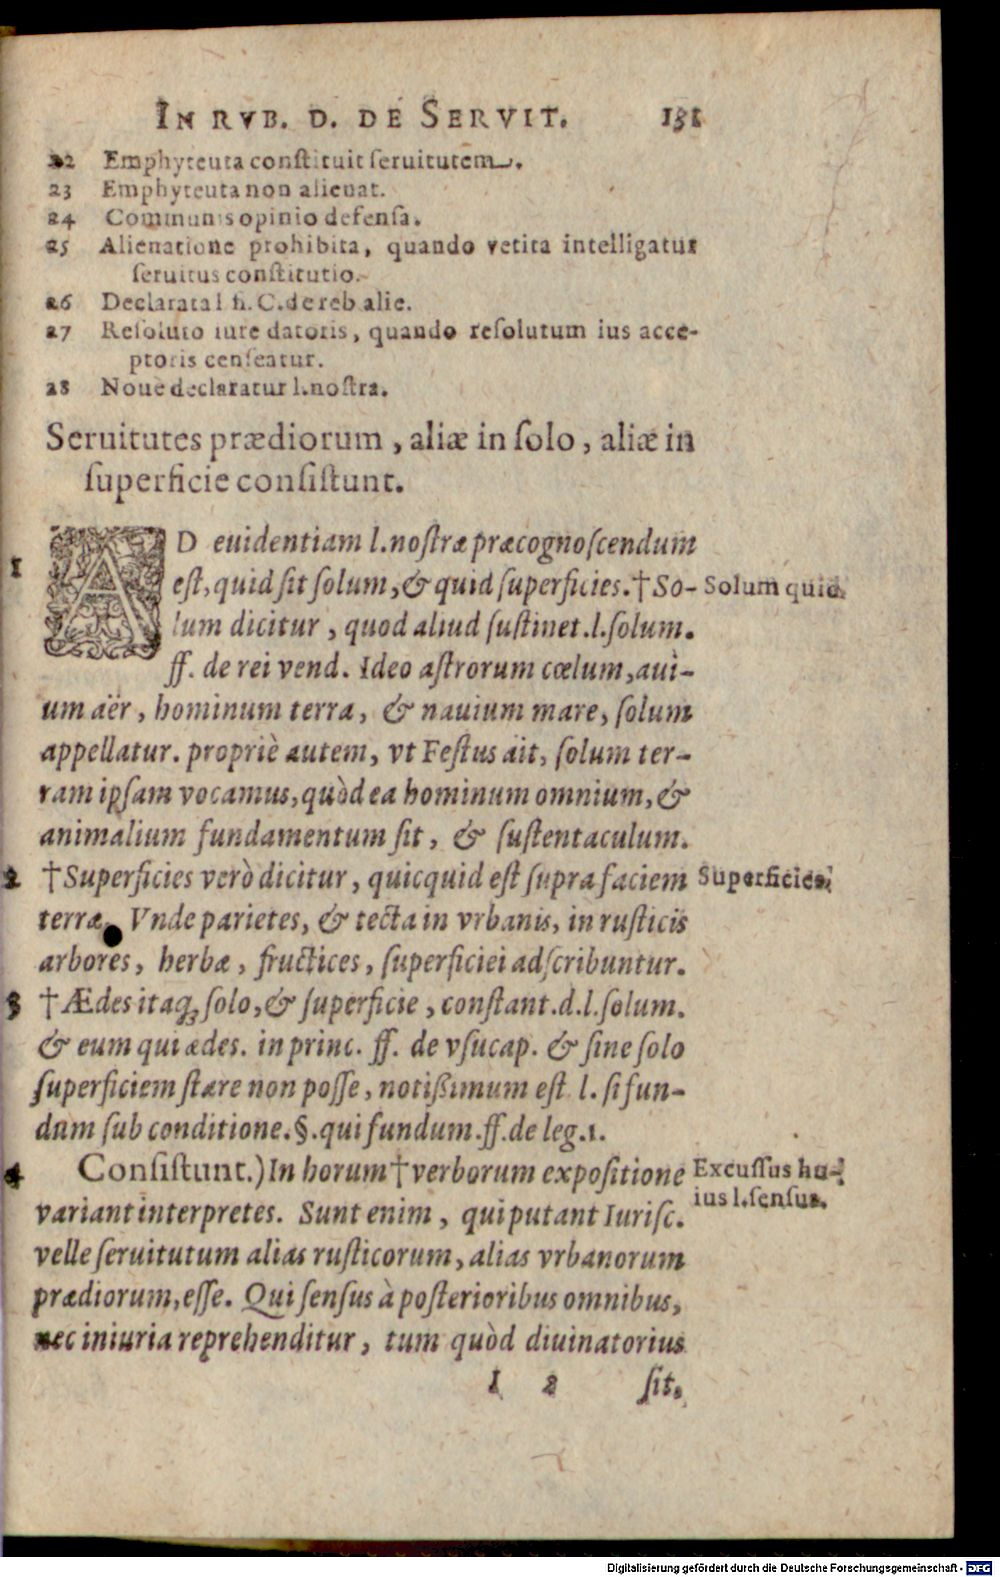 IN RVB. D. DE SERVIT. 131
22 Emphyteuta conſtituit ſeruitutem.
23 Emphyteuta non alienat.
24 Communis opinio defenſa.
25 Alienatione prohibita, quando vetita intelligatur
ſeruitus conſtitutio.
26 Declarata l fi. C. de reb alie.
27 Reſoluto iure datoris, quando reſolutum ius acce-
ptoris cenſeatur.
28 Nouè declaratur l.noſtra.
Seruitutes prædiorum, aliæ in ſolo, aliæ in
ſuperficie conſiſtunt.
1 AD euidentiam l.noſtræ præcognoſcendum
eſt, quid ſit ſolum, & quid ſuperficies. †So- Solum quid.
lum dicitur, quod aliud ſuſtinet.l.ſolum.
ff. de rei vend. Ideo aſtrorum cœlum, aui-
um aër, hominum terra, & nauium mare, ſolum
appellatur. propriè autem, vt Feſtus ait, ſolum ter-
ram ipſam vocamus, quòd ea hominum omnium, &
animalium fundamentum ſit, & ſuſtentaculum.
2 †Superficies verò dicitur, quicquid eſt ſupra faciem Superficies.
terræ. Vnde parietes, & tecta in vrbanis, in ruſticis
arbores, herbæ, fructices, ſuperficiei adſcribuntur.
3 †Ædes itaq; ſolo, & ſuperficie, conſtant.d.l.ſolum.
& eum qui ædes. in princ. ff. de vſucap. & ſine ſolo
ſuperficiem ſtare non poſſe, notißimum eſt l. ſi fun-
dum ſub conditione.§.qui fundum.ff.de leg.1.
4 Conſiſtunt.) In horum † verborum expoſitione Excuſſus hu-
variant interpretes. Sunt enim, qui putant Iuriſc. ius l.ſenſus.
velle ſeruitutum alias ruſticorum, alias vrbanorum
prædiorum, eſſe. Qui ſenſus à poſterioribus omnibus,
nec iniuria reprehenditur, tum quòd diuinatorius
I 2 ſit.
Digitalisierung gefördert durch die Deutsche Forschungsgemeinschaft - DFG